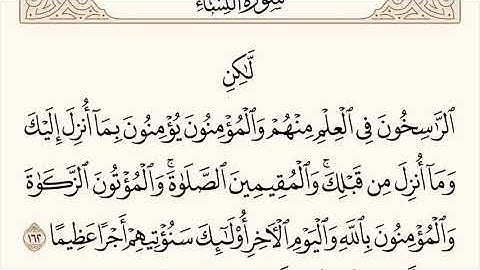 سُورَةُ النِّسَاءِ
لَّٰكِنِ
ٱلرَّٰسِخُونَ فِي ٱلْعِلْمِ مِنْهُمْ وَٱلْمُؤْمِنُونَ يُؤْمِنُونَ بِمَآ أُنزِلَ إِلَيْكَ
وَمَآ أُنزِلَ مِن قَبْلِكَۚ وَٱلْمُقِيمِينَ ٱلصَّلَوٰةَۚ وَٱلْمُؤْتُونَ ٱلزَّكَوٰةَ
وَٱلْمُؤْمِنُونَ بِٱللَّهِ وَٱلْيَوْمِ ٱلْأٓخِرِ أُوْلَٰٓئِكَ سَنُؤْتِيهِمْ أَجْرًا عَظِيمًا ١٦٢